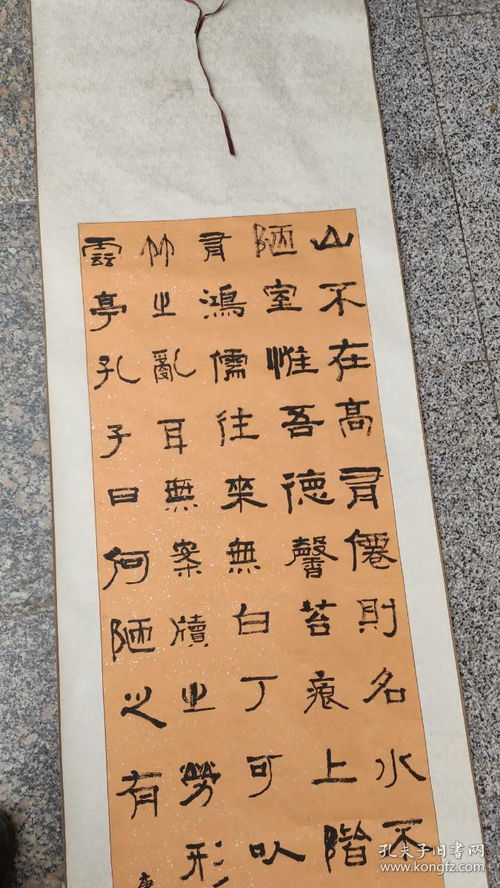 山不在高有僊則名水不
陋室惟吾德馨苔痕上階
有鴻儒往來無白丁可以
竹之亂耳無案牘之勞形
雲亭孔子曰何陋之有
孔夫子旧书网
www.kongfz.com